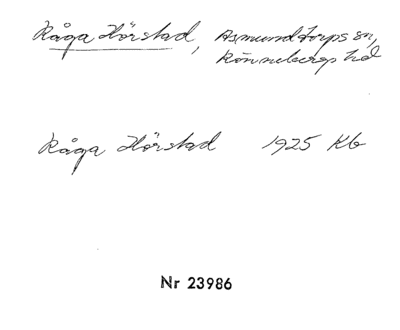 Råga Hörstad, Asmundtorps sn,
Rönnebergs hd
Råga Hörstad 1925 Kb
Nr 23986